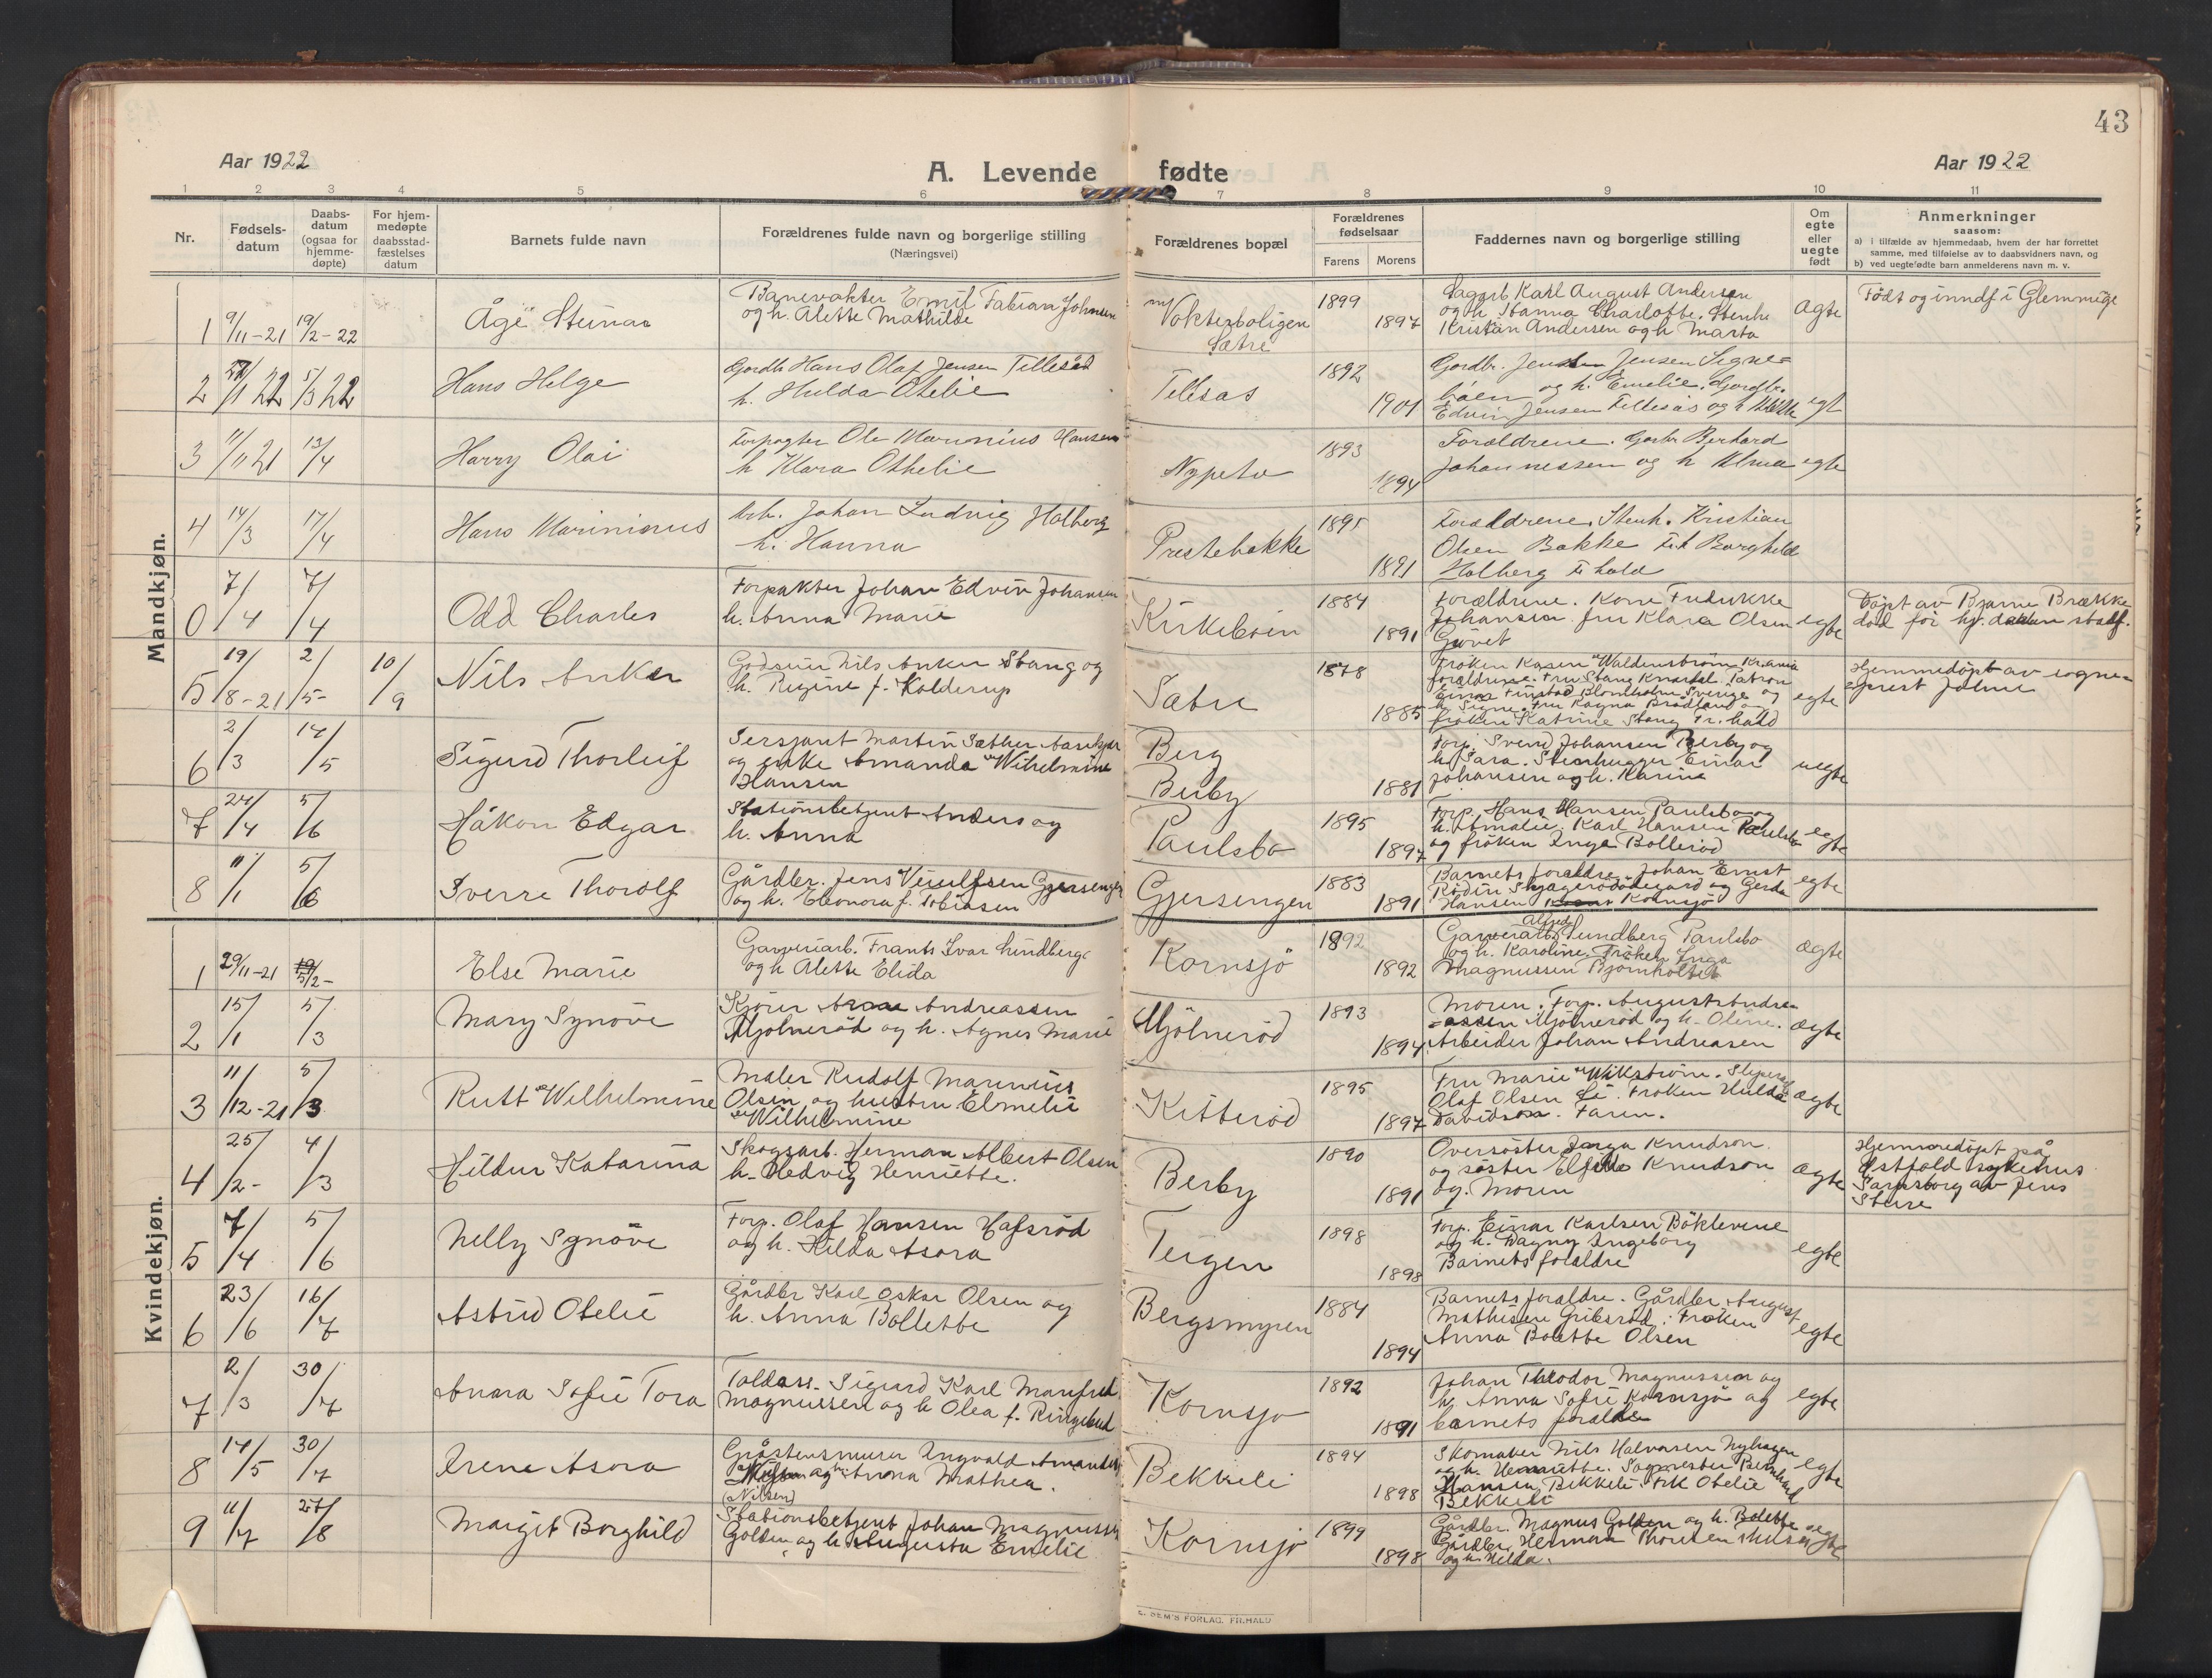 43
Aar 1922
A. Levende fødte
Aar 1922
1 2 3 4 5 6 7 8 9 10 11
Nr.
Fødsels-
datum
Daabs-
datum
(ogsaa for
hjemme-
døpte)
For hjem-
medøpte
daabsstad-
fæstelses
datum
Barnets fulde navn
Forældrenes fulde navn og borgerlige stilling
(Næringsvei)
Forældrenes bopæl
Forældrenes
fødselsaar
Farens Morens
Faddernes navn og borgerlige stilling
Om
egte
eller
uegte
født
Anmerkninger
saasom:
a) i tilfælde av hjemmedaab, hvem der har forrettet
samme, med tilføielse av to daabsvidners navn, og
b) ved uegtefødte barn anmelderens navn m. v.
Mandkjøn.
1 9/11-21 19/2-22 Åge Steinar
Banevakter Emil Fabian Johnsen
og h. Alette Mathilde
Vokterboligen
Sætre
1899 1897
Karl August Andersen
og h Hanna Charlotte. Stenh
Kristian Andersen og h Marta
ægte
Født og inndf i Glemmige
2 /1 22 5/3 22 Hans Helge
Gordb Hans Olaf Jensen Tillesås
h. Hulda Otelie
Tillesas
1892 1901
Gordbr. Jensen Signe-
båen og h. Emelie. Gordbr.
Edvin Jensen Tillesås og h
egt
3 11/11 21 13/4 Harry Olai
Forpagter Ole Marinius Hansen
h Klara Othelie
Nypetø
1893 1894
Forældrene. Garbr Berhard
Johannessen og h Alma
egte
4 14/3 17/4 Hans Marinius
Arb. Johan Ludvig Holberg
h. Hanna
Prestebakke
1891 1891
Forældrene. Stenh. Kristian
Olsen Bakke Frk Borghild
Holberg F. hald
0 7/4 7/4 Odd Charles
Forpakter Johan Edvin Johansen
h. Anna Marie
Kirkebøen
1884 1891
Forældrene. Kone Fredrikke
Johansen. fru Klara Olsen
egte
Døpt av Bjarne Brække
død før hj. daaben stadf.
5 19/8-21 2/5- 10/9 Nils Anker
Godseier Nils Anker Stang og
h. Regine f. Kolderup
Sætre
1878 1885
Frøken Kasen Waldenstrøm Krania
forældrene. Fru Stang Patron
Einar Finstad Blomholm Sverige og
h. Signe. Fru Ragna Brødland og
frøken Katrine Stang Fr. hald
egte
Hjemmedøpt av sogne-
prest
6 2/3 14/5 Sigurd Thorleif
Sersjant Martin Sæther
og enke Amanda Wilhelmine
Hansen
Berg
Berby
1881
Forp. Svend Johansen Berby og
h. Sara. Stenhugger Einar
Johansen og h. Karine
uegte
7 24/4 5/6 Håkon Edgar
Stationsbetjent Anders og
h. Anna
Paulsbo
1895 1897
Forp. Hans Hansen Paulsbo og
h. Amalie. Karl Hansen Paulsbo
og frøken Inga Bollerød
egte
8 11/1 5/6 Sverre Thorolf
Gårdbr. Jens Gjersengen
og h. Eleonora f. Tobiasen
Gjersengen
1883 1891
Barnets forældre. Johan Ernst
Rødin og Gerda
Hansen Kornsjø
egte
Kvindekjøn.
1 29/11-21 /2- Else Marie
Garveriarb. Frants Ivar Lundberg
og h Alette Elida
Kornsjö
1892 1892
Alfred
Lundberg Paulsbo
og h. Karoline. Frøken Inga
Magnussen Bjørnholtet
ægte
2 15/1 5/3 Mary Synöve
Kjører Arne Andreassen
Mjølnerød og h. Agnes Marie
Mjölneröd
1893 1894
Moren. Forp. August Andre-
assen Mjølnerød og h. Oline.
Arbeider Johan Andreasen
ægte
3 11/12-21 5/3 Rutt Wilhelmine
Maler Rudolf Marinius
Olsen og hustru Elmelie
Wilhelmine
Kitteröd
1895 1897
Fru Marie Wikstrøm.
Olaf Olsen Li. Frøken Hulda
Davidson. Faren.
ægte
4 25/2- 4/3 Hildur Katarina
Skogsarb. Herman Albert Olsen
h. Hedvig Henriette.
Berby
1890 1891
Oversøster Inga Knudson
og søster Elfrida Knudson
og. Moren
ægte
Hjemmedøpt på
Østfold sykehus
Sarpsborg av Jens
Steise
5 7/4 5/6 Nelly Synöve
Forp. Olaf Hansen Hafsrød
og h. Hilda Asora
Teigen
1898 1898
Forp. Einar Karlsen Bøklevene
og h. Dagny Ingeborg
Barnets forældre
egte
6 23/6 16/7 Astrid Otelie
Gårdbr Karl Oskar Olsen og
h. Anna Bollette
Bergsmyren
1884 1894
Barnets forældre. Gårdbr. August
Mathisen Gribsrød. Frøken
Anna Bolette Olsen
egte
7 2/3 30/7 Anna Sofie Tora
Toldass. Sigurd Karl Manfred
Magnussen og h Olea f. Ringebud
Kornsjø
1892 1891
Johan Theodor Magnussen og
h. Anna Sofie Kornsjø og
barnets forældre
egte
8 14/5 30/7 Irene Asora
Gråstensmurer Ingvald Amandus
og h. Anna Mathea.
(Nilsen)
Bekkeli
1894 1898
Skomaker Nils Halvorsen Nyhagen
og h. Henriette. Bernhard
Hansen Bekkeli. Frk Otelie
Bekkeli
egte
9 11/7 27/8 Margit Borghild
Stationsbetjent Johan Magnussen
Golden og h. Augusta Emelie
Kornsjø
1899 1898
Gårdbr. Magnus Golden og h. Bolette
Gårdbr. Herman
og h. Hilda.
egte
E. SEM'S FORLAG. FR.HALD